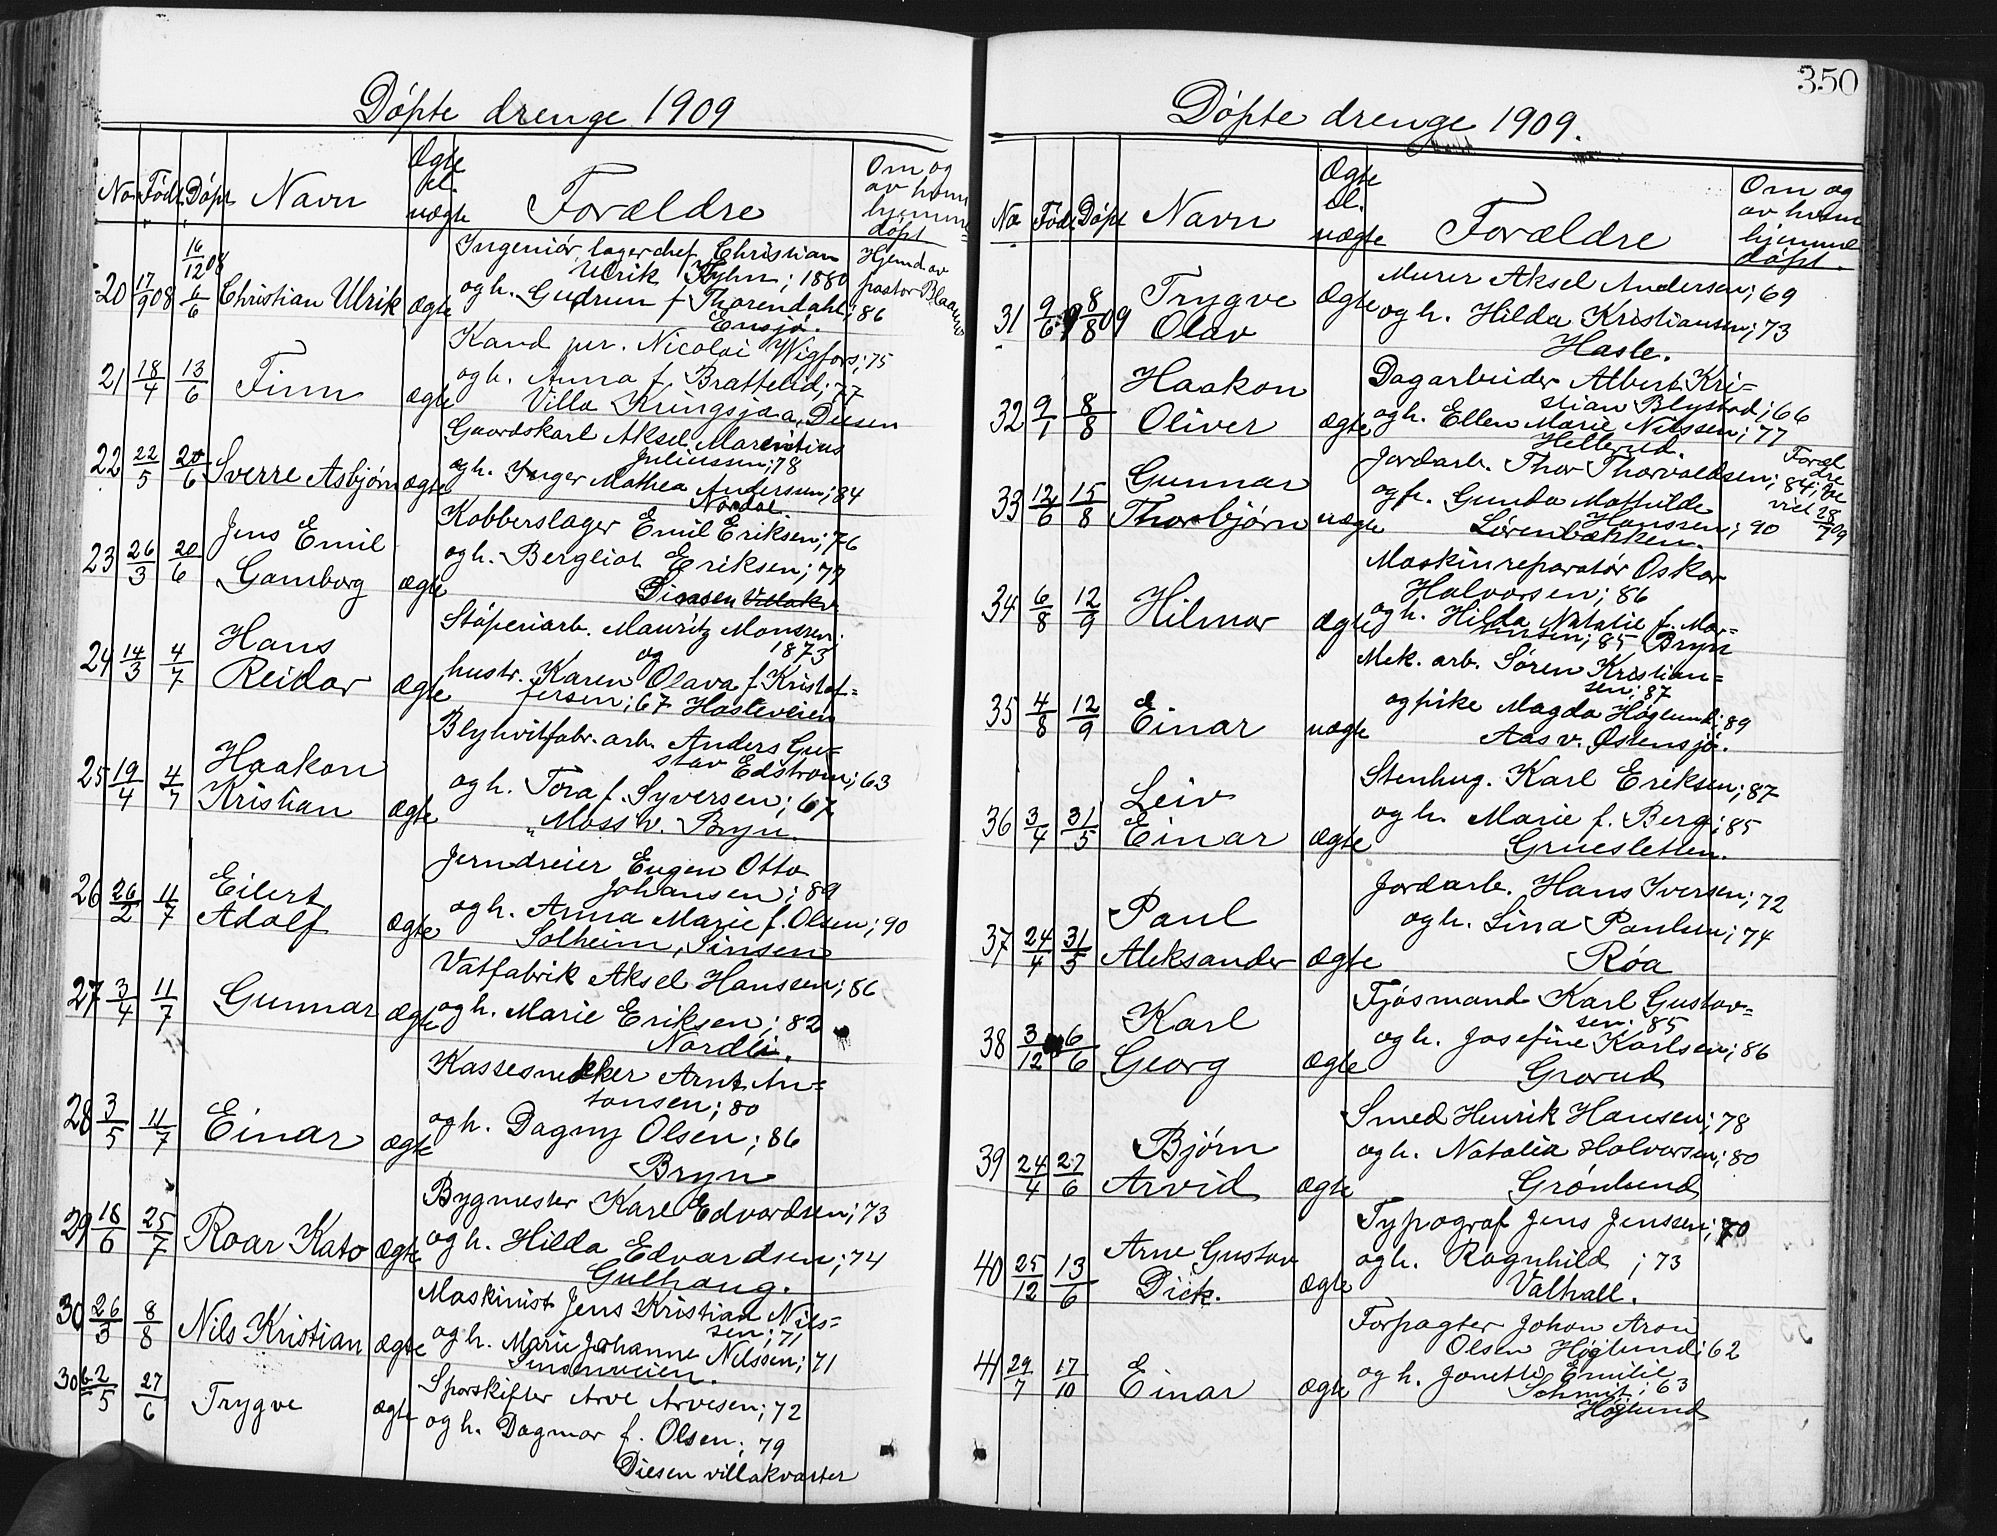 350
Døpte drenge 1909
No Født Døpt Navn Ægte el. uægte Forældre Om og av hvem hjemme=døpt
20 17/9 08 16/12 08 6/6 Christian Ulrik ægte Ingeniør, lagerchef Christian
Ulrik Kyhn; 1880
og h. Gudrun f. Thorendahl; 86
Ensjø.
Hjemd. av pastor
21 18/4 13/6 Finn ægte Kand jur. Nicolai Wigfors; 75
og h. Anna f. Bratteud; 77
Villa Kringsjaa, Disen
22 22/5 20/6 Sverre Asbjørn ægte Gaardskarl Aksel Marentius
Juliussen; 78
og h. Inger Mathea Andersen; 84
Nordal
23 26/3 20/6 Jens Emil Gamborg ægte Kobberslager Emil Eriksen; 76
og h. Bergliot Eriksen; 77
Disen Villakv
24 14/3 4/7 Hans Reidar ægte Støperiarb. Mauritz Monssen.
og 1873
hustr. Karen Olava f. Kristof=
fersen; 67 Hasleveien
25 19/4 4/7 Haakon Kristian ægte Blyhvitfabr. arb. Anders Gu=
stav Edstrøm; 63
og h. Tora f. Syversen; 67
Moss v. Bryn
26 26/2 11/7 Eilert Adolf ægte Jerndreier Eugen Otto
Johansen; 89
og h. Anna Marie f. Olsen; 90
Solheim, Sinsen
27 3/4 11/7 Gunnar ægte Vatfabrik Aksel Hanssen; 86
og h. Marie Eriksen; 82
Nordli.
28 3/5 11/7 Einar ægte Kassesnekker Arnt An=
tonsen; 80
og h. Dagny Olsen; 86
Bryn
29 18/6 25/7 Roar Kato ægte Bygmester Karl Edvardsen; 73
og h. Hilda Edvardsen; 74
Gulhaug.
30 26/3 8/8 Nils Kristian ægte Maskinist Jens Kristian Nils=
sen; 71
og h. Marie Johanne Nilssen; 71
Sinsenveien.
30 b 2/5 27/6 Trygve ægte Sporskifter Arve Arvesen; 72
og h. Dagmar f. Olsen; 79
Disen villakvarter
Døpte drenge 1909.
No Født Døpt Navn Ægte el. uægte Forældre Om og av hvem hjemme døpt.
31 9/6 8/8 09 Trygve Olav Ægte Murer Aksel Andersen; 69
og h. Hilda Kristiansen; 73
Hasle.
32 9/1 8/8 Haakon Oliver ægte Dagarbeider Albert Kri=
stian Blystad; 66
og h. Ellen Marie Nilssen; 77
Hellerud.
33 12/6 15/8 Gunnar Thorbjørn uægte Jordarb. Thor Thorvaldsen; 84;
og fr. Gunda Mathilde
Hanssen; 90
Lørenbakken.
Forældre geviet 28/7 09
34 6/8 12/9 Hilmar ægte Maskinreparatør Oskar
Halvorsen; 86
og h. Hilda Natalie f. Mar=
tinsen; 85 Bryn
35 4/8 12/9 Einar uægte Mek. arb. Søren Kristian=
sen; 87
og pike Magda Høglund; 89
Aas v. Østensjø.
36 3/4 31/5 Leiv Einar ægte Stenhug. Karl Eriksen; 87
og h. Marie f. Berg; 85
Gruesletten.
37 24/4 31/5 Paul Aleksander Ægte Jordarb. Hans Iversen; 72
og h. Lina Paulsen; 74
Røa
38 3/12 6/6 Karl Georg ægte Fjøsmand Karl Gustav=
sen; 85
og h. Josefine Karlsen; 86
Grorud
39 24/4 27/6 Bjørn Arvid ægte Smed Henrik Hansen; 78
og h. Natalia Halvorsen; 80
Grønlund
40 25/12 13/6 Arne Gustav Dick. ægte Typograf Jens Jenssen; 70
og h. Ragnhild ; 73
Valhall.
41 29/7 17/10 Einar ægte Forpagter Johan Aron
Olsen Høglund; 62
og h. Janette Emilie
Schmit; 63
Høglund